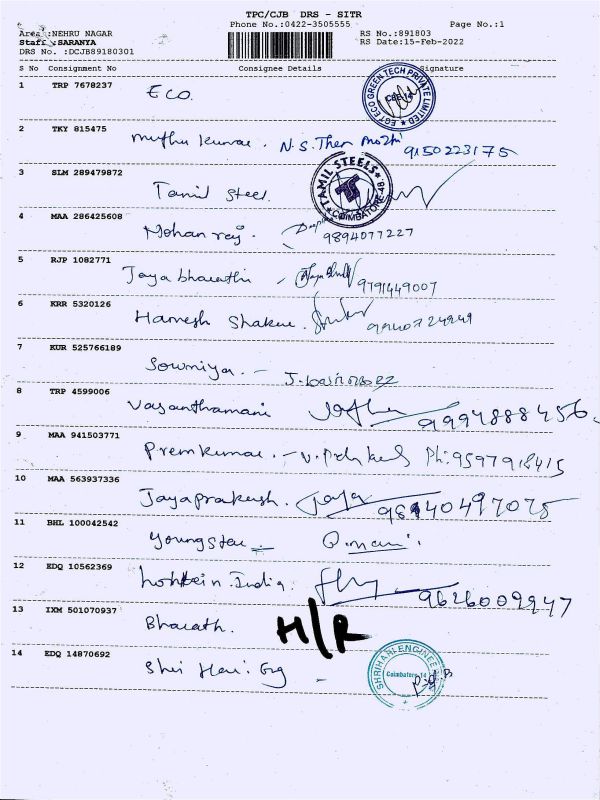 TPC/CJB DRS - SITR
Phone No.:0422-3505555 Page No.:1
Area :NEHRU NAGAR RS No.:891803
Staff :SARANYA RS Date:15-Feb-2022
DRS No. :DCJB89180301
S No Consignment No Consignee Details Signature
1 TRP 7678237 ECO. EGT ECO GREEN TECH PRIVATE LIMITED CBE-14
2 TKY 815475 Muthu kumar. N.S. Then Mozhi 9150223175
3 SLM 289479872 Tamil Steel. TAMIL STEELS TS COIMBATORE-48
4 MAA 286425608 Mohan raj. 9894077227
5 RJP 1082771 Jaya bharathi - 9791449007
6 KRR 5320126 Hamesh Shakar.
7 KUR 525766189 Sowmiya. -
8 TRP 4599006 Vasanthamani 9994888456.
9 MAA 941503771 Premkumar. - Ph: 9597918415
10 MAA 563937336 Jayaprakash. Jaya
11 BHL 100042542 Youngster
12 EDQ 10562369 India. 9626009947
13 IXM 501070937 Bharath. H/R
14 EDQ 14870692 Shri Hari. Eng - SHRI HARI ENGINEE Coimbatore-14